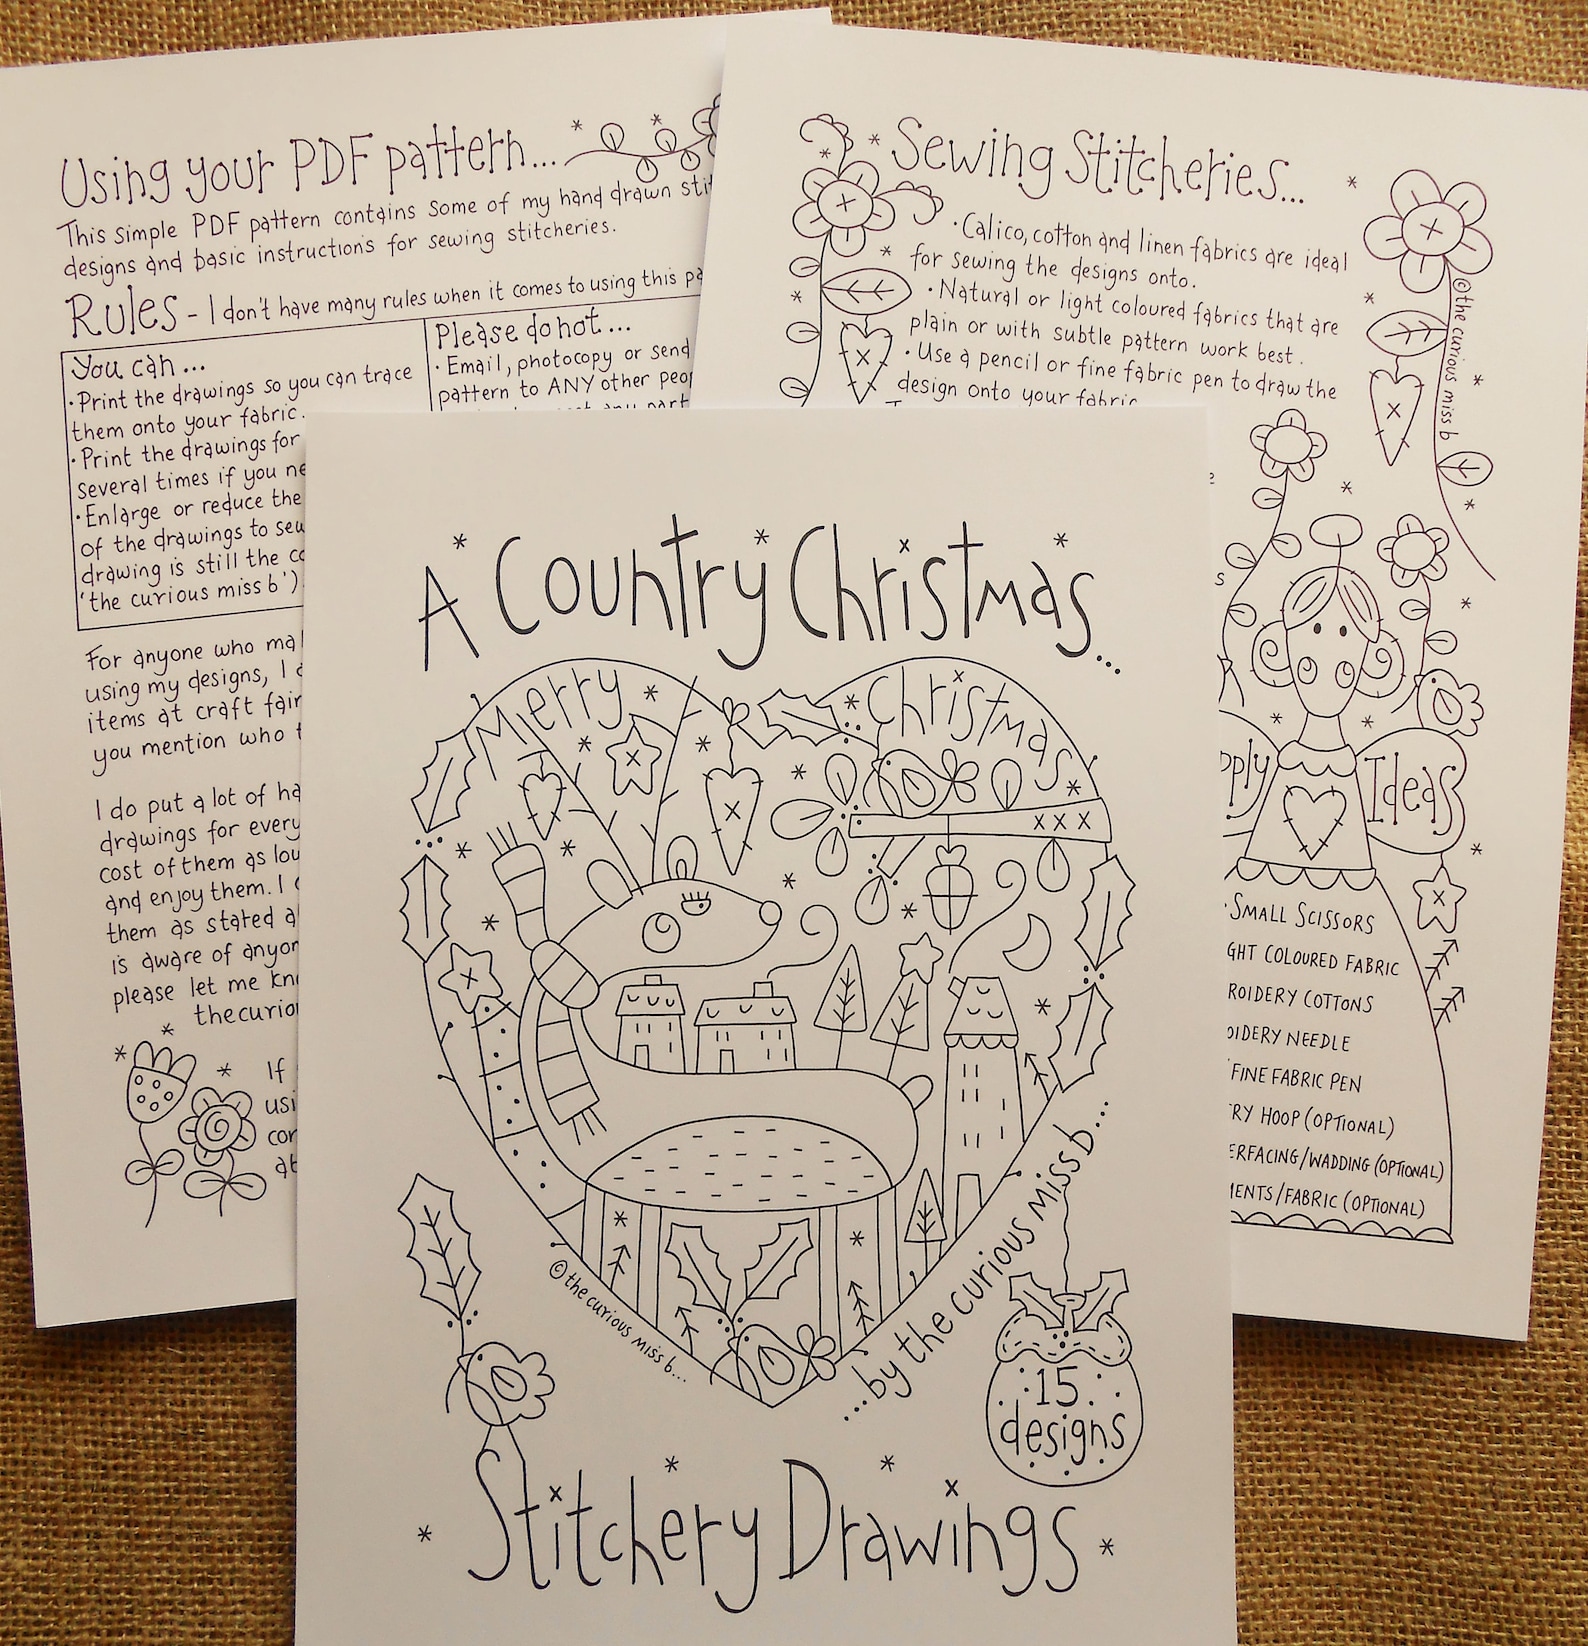 Using your PDF pattern...
This simple PDF pattern contains some of my hand drawn
designs and basic instructions for sewing stitcheries.
Rules - I don't have many rules when it comes to using this
You can...
• Print the drawings so you can trace
them onto your fabric.
• Print the drawings for
several times if you
• Enlarge or reduce the
of the drawings to
drawing is still the
'the curious miss b')
Please do not...
• Email, photocopy or send
pattern to ANY other
any part
For anyone who
using my designs, I
items at craft
you mention who
I do put a lot of
drawings for every
cost of them as
and enjoy them. I
them as stated
is aware of
please let me
If
Sewing Stitcheries...
• Calico, cotton and linen fabrics are ideal
for sewing the designs onto.
• Natural or light coloured fabrics that are
plain or with subtle pattern work best.
• Use a pencil or fine fabric pen to draw the
design onto your fabric
©the curious miss b
Ideas
• SMALL SCISSORS
COLOURED FABRIC
COTTONS
NEEDLE
FINE FABRIC PEN
HOOP (OPTIONAL)
/WADDING (OPTIONAL)
/FABRIC (OPTIONAL)
A Country Christmas...
Merry Christmas
xxx
© the curious miss b...
...by the curious miss b...
15
designs
Stitchery Drawings